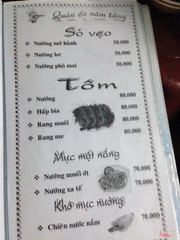 Quán ốc năm tầng
Sò vẹo
Nướng mỡ hành 50.000
Nướng bơ 50.000
Nướng phô mai 50.000
Tôm
Nướng 80.000
Hấp bia 80.000
Rang muối 80.000
Rang me 80.000
Mực một nắng
Nướng muối ớt 70.000
Nướng xa tế 70.000
Khô mực nướng
Chiên nước nắm 70.000